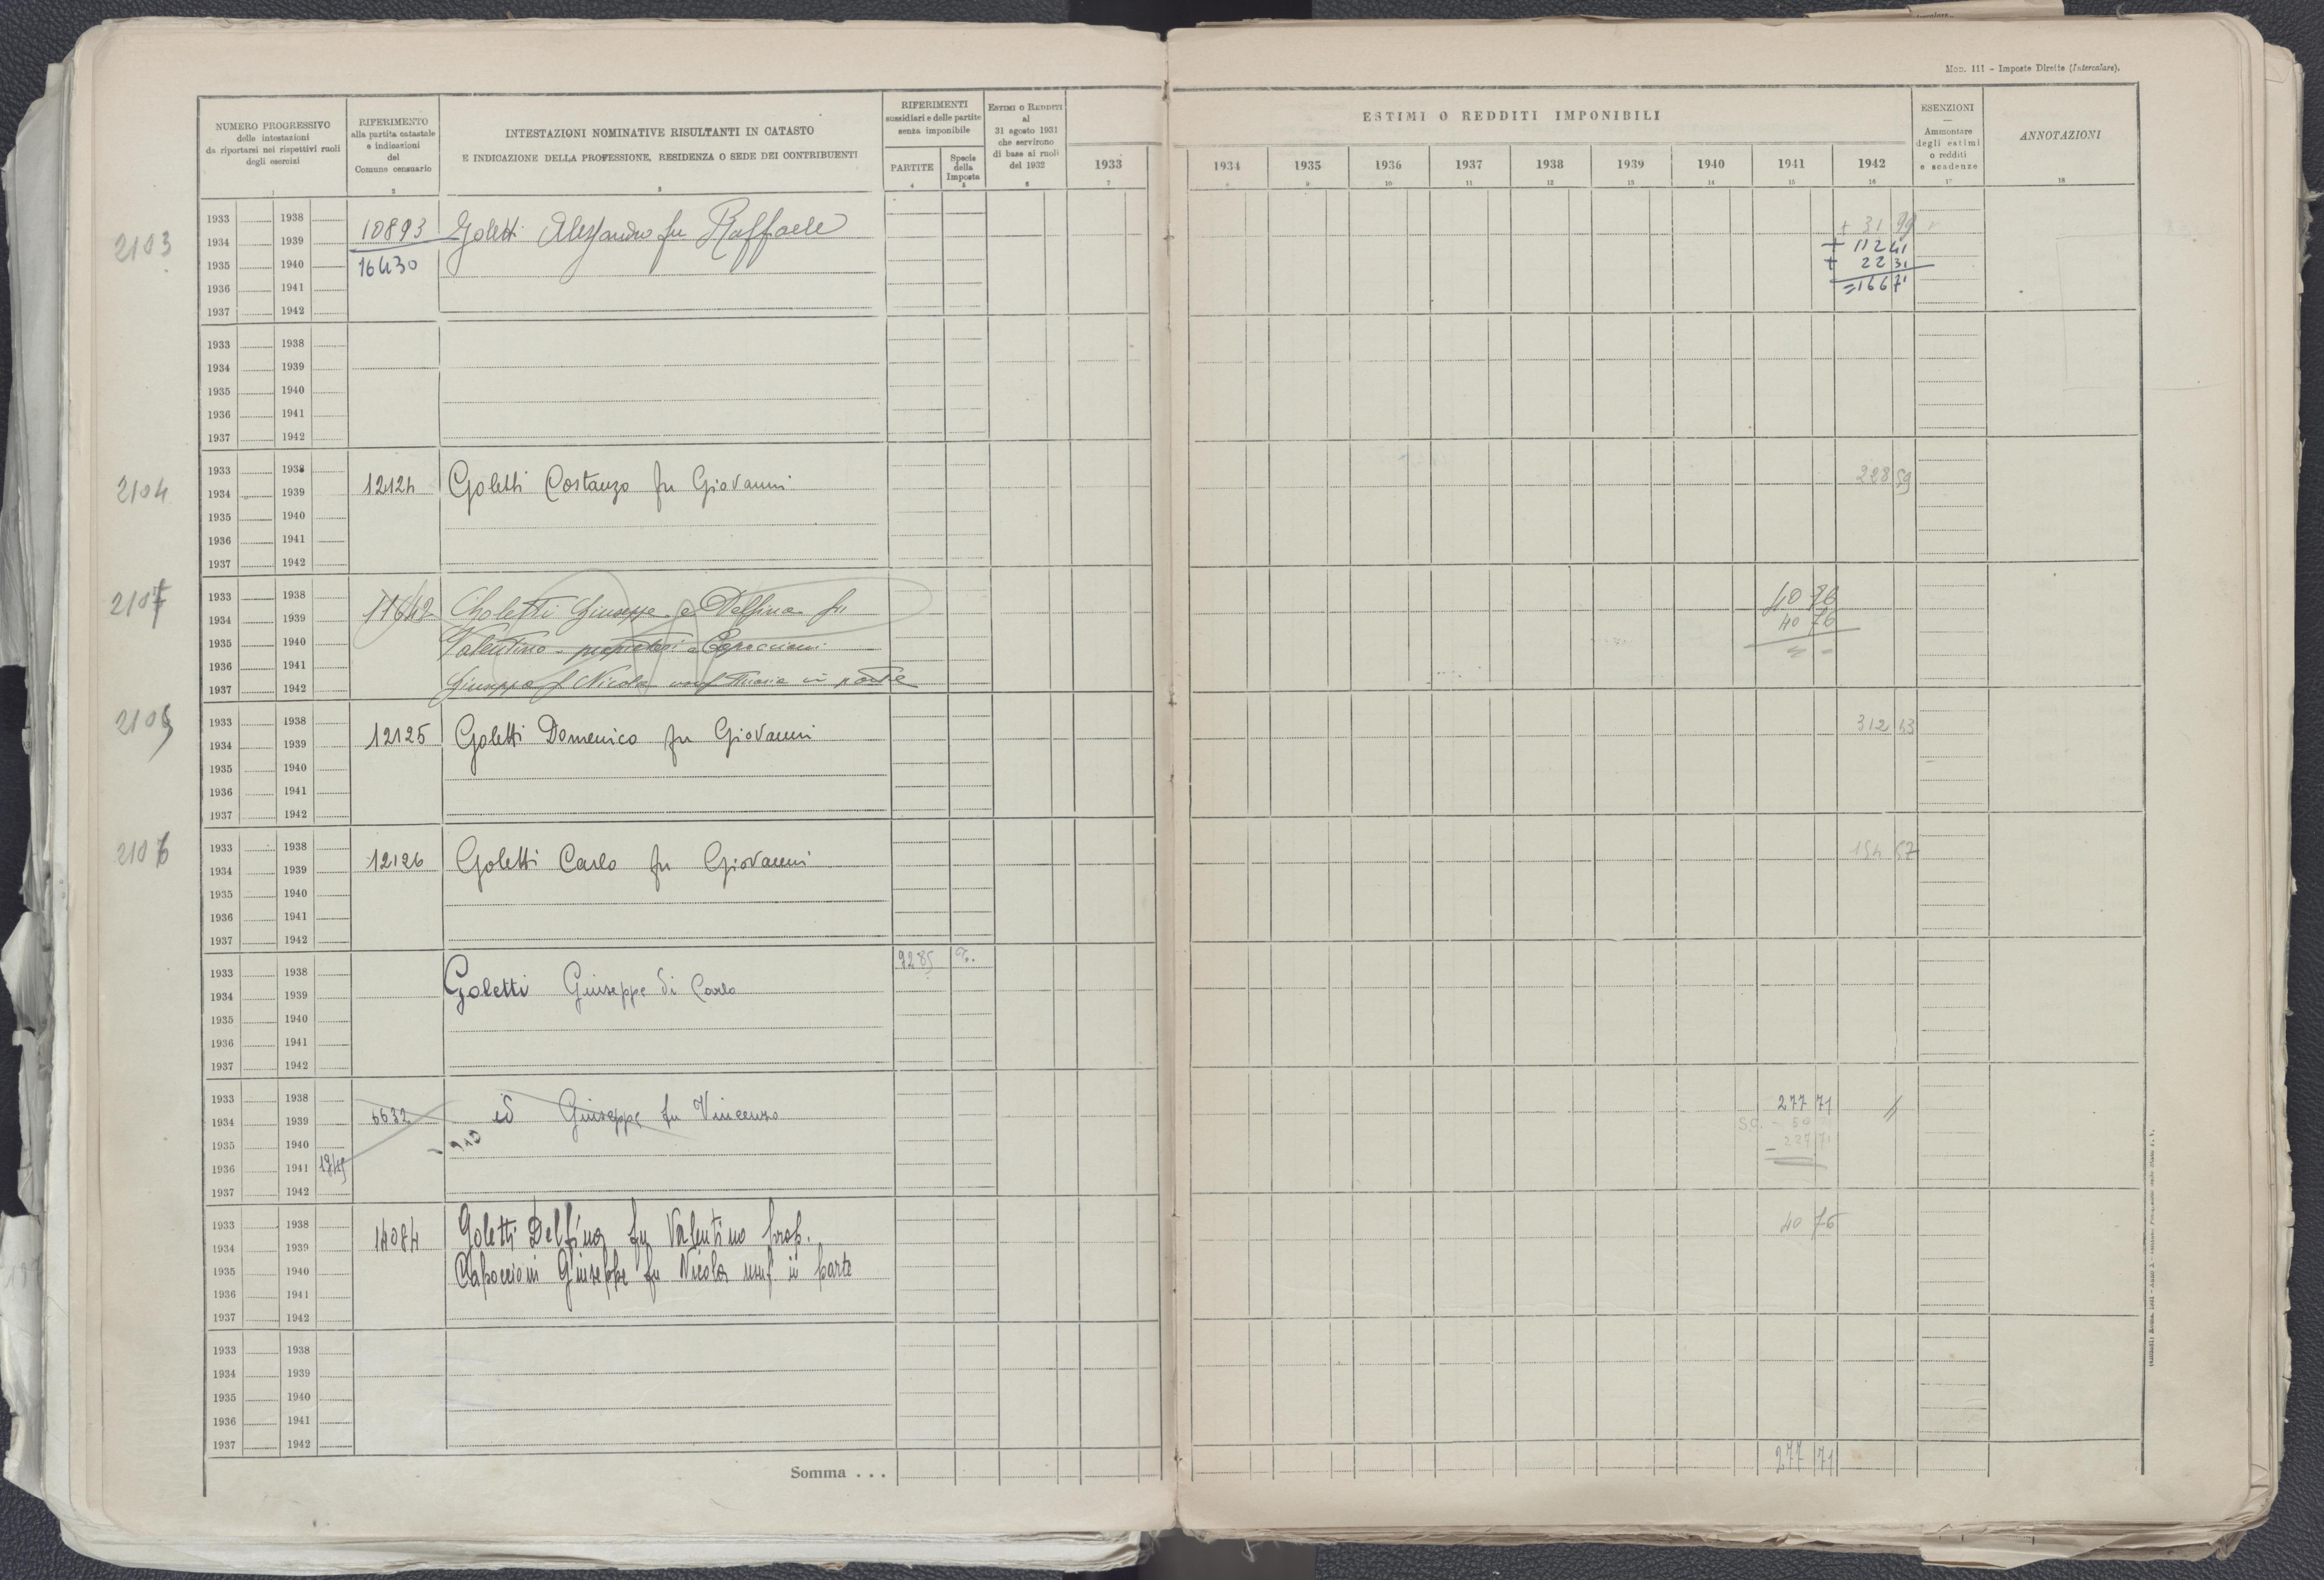 Mod. 111 - Imposte Dirette (Intercalare).
NUMERO PROGRESSIVO
delle intestazioni
da riportarsi nei rispettivi ruoli
degli esercizi
1
RIFERIMENTO
alla partita catastale
e indicazioni
del
Comune censuario
2
INTESTAZIONI NOMINATIVE RISULTANTI IN CATASTO
E INDICAZIONE DELLA PROFESSIONE, RESIDENZA O SEDE DEI CONTRIBUENTI
3
RIFERIMENTI
sussidiari e delle partite
senza imponibile
PARTITE
4
Specie
della
Imposta
5
ESTIMI O REDDITI
al
31 agosto 1931
che servirono
di base ai ruoli
del 1932
6
1933
7
ESTIMI O REDDITI IMPONIBILI
1934 1935 1936 1937 1938 1939 1940 1941 1942
9 10 11 12 13 14 15 16
ESENZIONI
Ammontare
degli estimi
o redditi
e scadenze
17
ANNOTAZIONI
18
2103
1933 1938
1934 1939
1935 1940
1936 1941
1937 1942
10893 Goletti Alessandro fu Raffaele
16430
+ 31 99
+ 112 41
+ 22 31
=166 71
1933 1938
1934 1939
1935 1940
1936 1941
1937 1942
2104
1933 1938
1934 1939
1935 1940
1936 1941
1937 1942
12124 Goletti Costanzo fu Giovanni
228 59
2107
1933 1938
1934 1939
1935 1940
1936 1941
1937 1942
11642 Goletti Giuseppe e Delfina fu
Valentino - proprietari e Capoccioni
Giuseppe f Nicola usufruttuaria in parte
40 76
40 76
2105
1933 1938
1934 1939
1935 1940
1936 1941
1937 1942
12125 Goletti Domenico fu Giovanni
312 43
2106
1933 1938
1934 1939
1935 1940
1936 1941
1937 1942
12126 Goletti Carlo fu Giovanni
154 57
1933 1938
1934 1939
1935 1940
1936 1941
1937 1942
Goletti Giuseppe di Carlo
9285
1933 1938
1934 1939
1935 1940
1936 1941
1937 1942
6632 id Giuseppe fu Vincenzo
277 71
1933 1938
1934 1939
1935 1940
1936 1941
1937 1942
14084 Goletti Delfina fu Valentino prop.
Capoccioni Giuseppe fu Nicola usuf in parte
40 76
1933 1938
1934 1939
1935 1940
1936 1941
1937 1942
Somma . . .
277 71